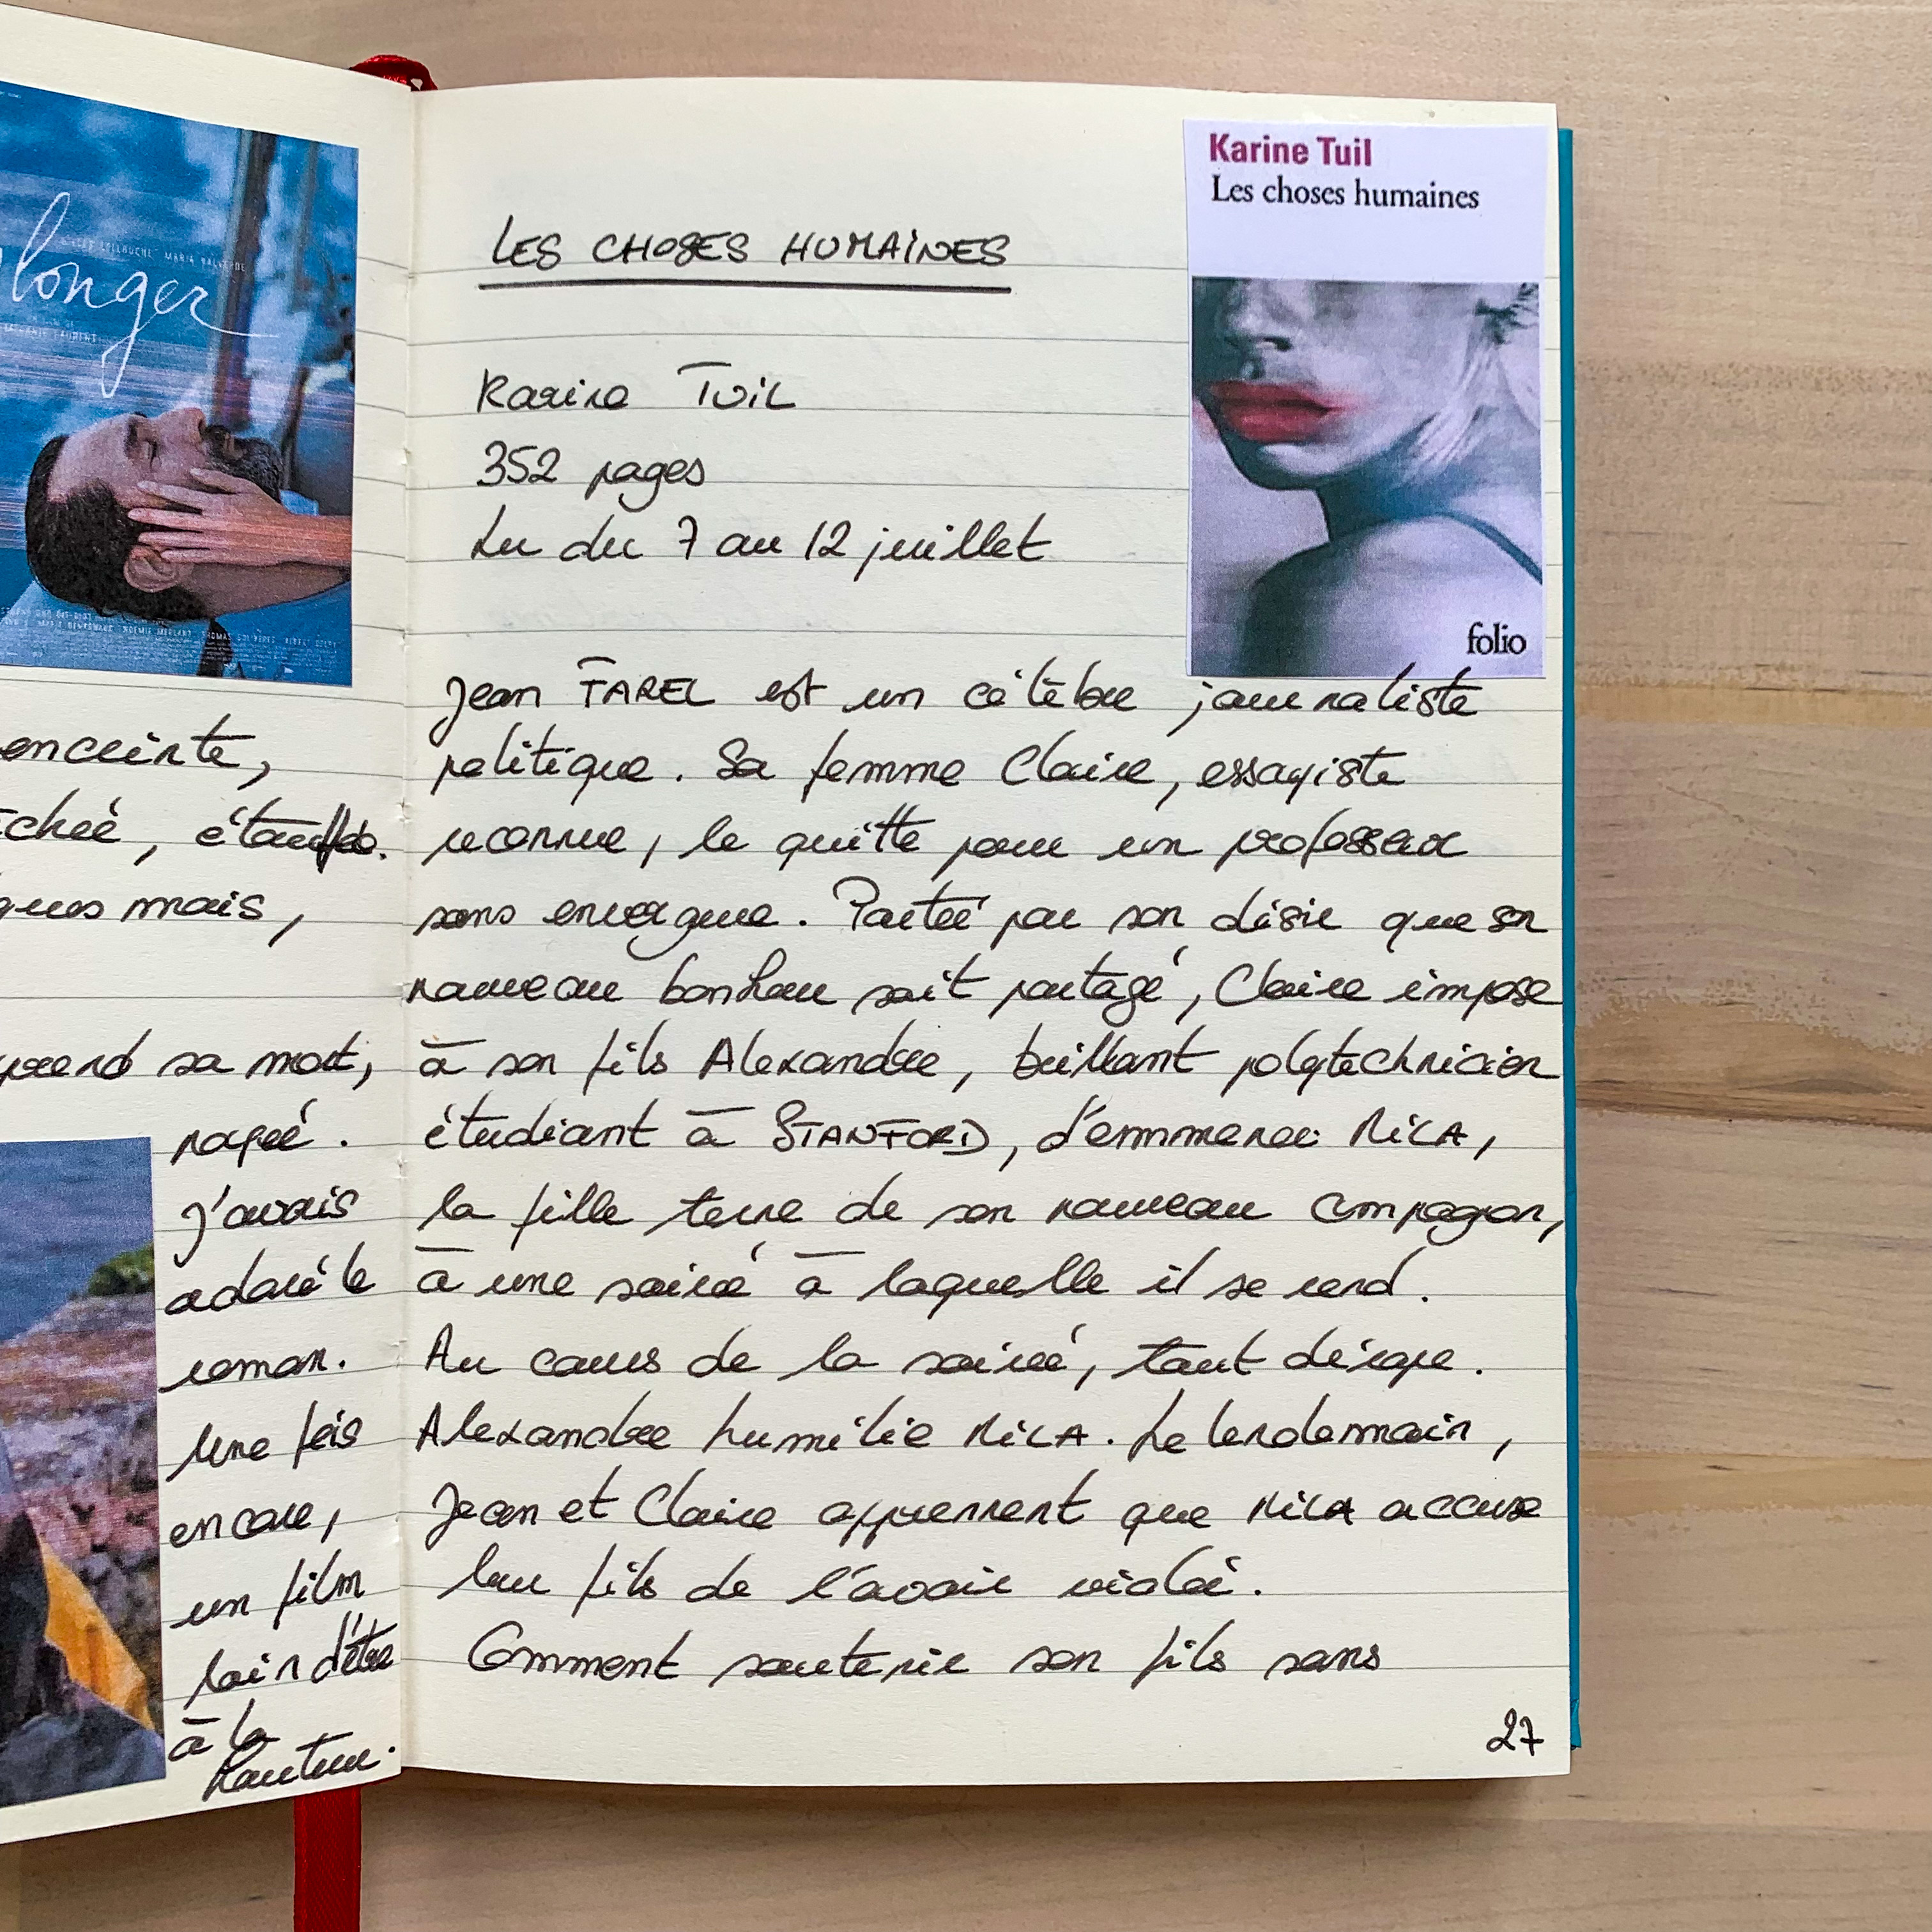 longer
enceinte,
chée, étouffée.
ques mais,
prend sa mort,
j'avais
adoré le
roman.
Une fois
encore,
un film
loin d'être
à la
hauteur.
Karine Tuil
Les choses humaines
folio
LES CHOSES HUMAINES
Karine TUIL
352 pages
Lu du 7 au 12 juillet
Jean FAREL est un célèbre journaliste
politique. Sa femme Claire, essayiste
reconnue, le quitte pour un professeur
sans envergure. Portée par son désir que son
nouveau bonheur soit partagé, Claire impose
à son fils Alexandre, brillant polytechnicien
étudiant à STANFORD, d'emmener MILA,
la fille terne de son nouveau compagnon,
à une soirée à laquelle il se rend.
Au cours de la soirée, tout dérape.
Alexandre humilie MILA. Le lendemain,
Jean et Claire apprennent que MILA accuse
leur fils de l'avoir violée.
Comment soutenir son fils sans
27